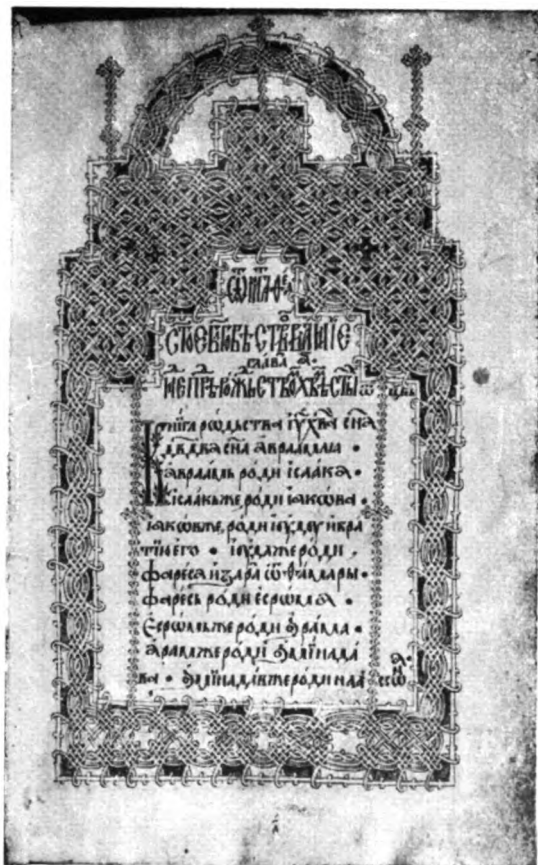 Ѿ маѳеа
стое еѵⷢлїе бл҃говѣствованїе
глава а҃
Книга рѡдьства іѵ҃ х҃ва сн҃а
дв҃два сн҃а авраамлꙗ •
авраамь роди ісаака •
ісаакьже роди іакѡва •
іакѡвже роди іѹдѹ и бра
тїи его • іѹдаже роди
фареса и зара ѿ ѳамары •
фаресь роди есрѡма •
Есрѡмьже роди арама •
арамже роди амїнада
ва • амїнадавже роди наассѡ